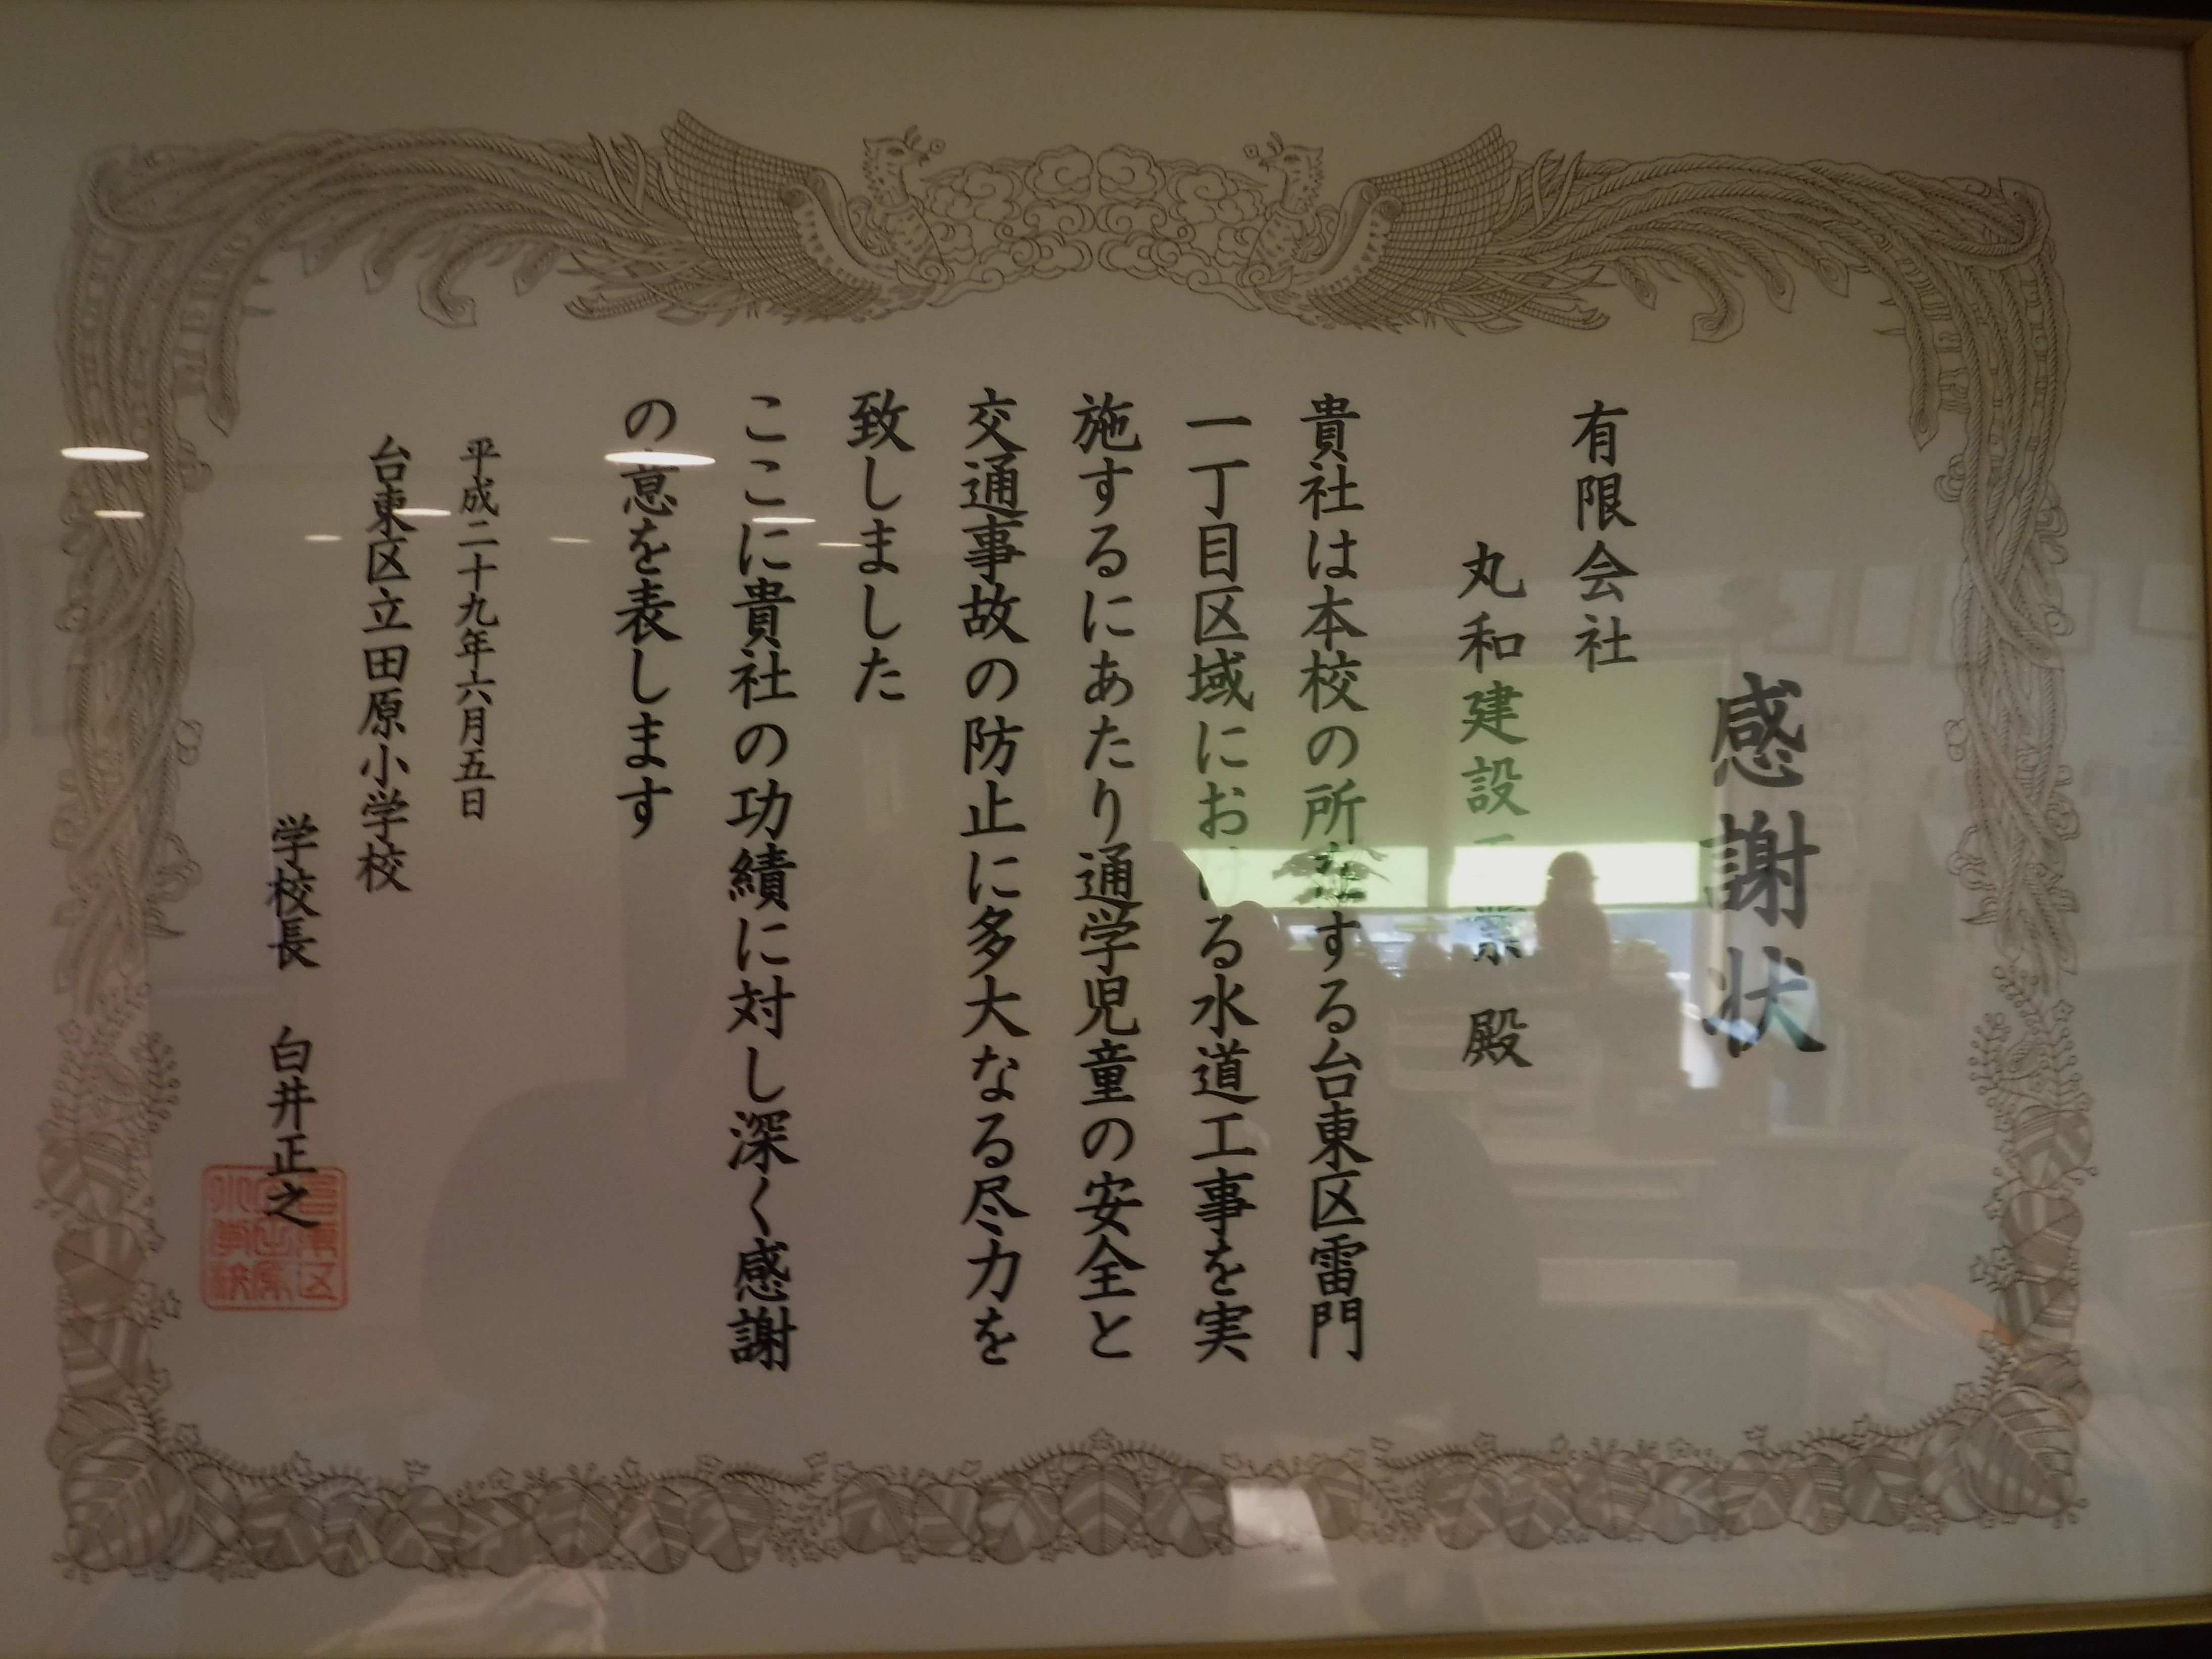 感謝状
有限会社
丸和建設工業 殿
貴社は本校の所在する台東区雷門
一丁目区域における水道工事を実
施するにあたり通学児童の安全と
交通事故の防止に多大なる尽力を
致しました
ここに貴社の功績に対し深く感謝
の意を表します
平成二十九年六月五日
台東区立田原小学校
学校長 白井正之
台東区
立田原
小学校